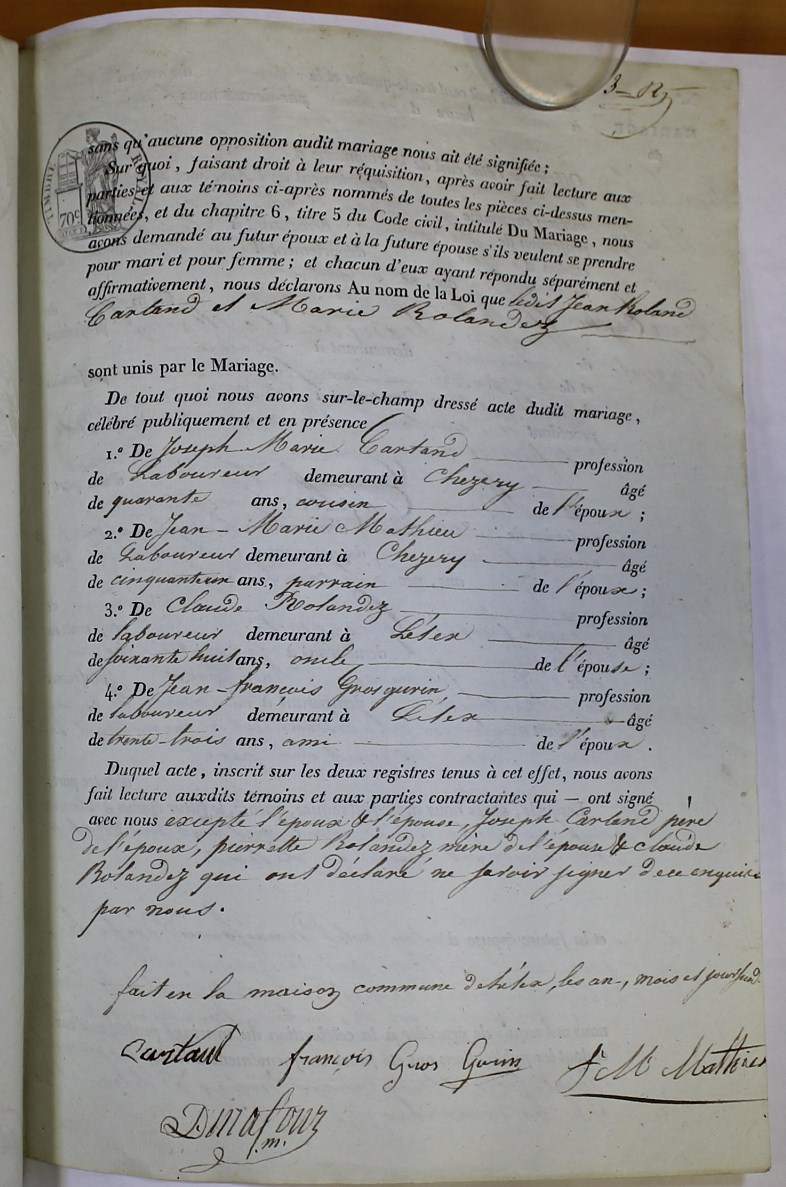 3
TIMBRE ROYAL
70c
sans qu'aucune opposition audit mariage nous ait été signifiée ;
Sur quoi, faisant droit à leur réquisition, après avoir fait lecture aux
parties et aux témoins ci-après nommés de toutes les pièces ci-dessus men-
tionnées, et du chapitre 6, titre 5 du Code civil, intitulé Du Mariage, nous
avons demandé au futur époux et à la future épouse s'ils veulent se prendre
pour mari et pour femme ; et chacun d'eux ayant répondu séparément et
affirmativement, nous déclarons Au nom de la Loi que ledit Jean Roland
Cartand et Marie Rolandez
sont unis par le Mariage.
De tout quoi nous avons sur-le-champ dressé acte dudit mariage,
célébré publiquement et en présence
1.° De Joseph Marie Cartand profession
de Laboureur demeurant à Chezery âgé
de quarante ans, cousin de l'époux ;
2.° De Jean-Marie Mathieu profession
de Laboureur demeurant à Chezery âgé
de cinquante un ans, parrain de l'époux ;
3.° De Claude Rolandez profession
de laboureur demeurant à Lélex âgé
de soixante huit ans, oncle de l'épouse ;
4.° De Jean-françois Grosgurin profession
de laboureur demeurant à Lélex âgé
de trente-trois ans, ami de l'époux.
Duquel acte, inscrit sur les deux registres tenus à cet effet, nous avons
fait lecture auxdits témoins et aux parties contractantes qui — ont signé
avec nous excepté l'époux & l'épouse, Joseph Cartand père
de l'époux, pierrette Rolandez mère de l'épouse & claude
Rolandez qui ont déclaré ne savoir signer de ce enquis
par nous.
fait en la maison commune de Lélex, les an, mois et jour susd.
Cartand françois Gros Gurin J M Mathieu
Dmafour
m.